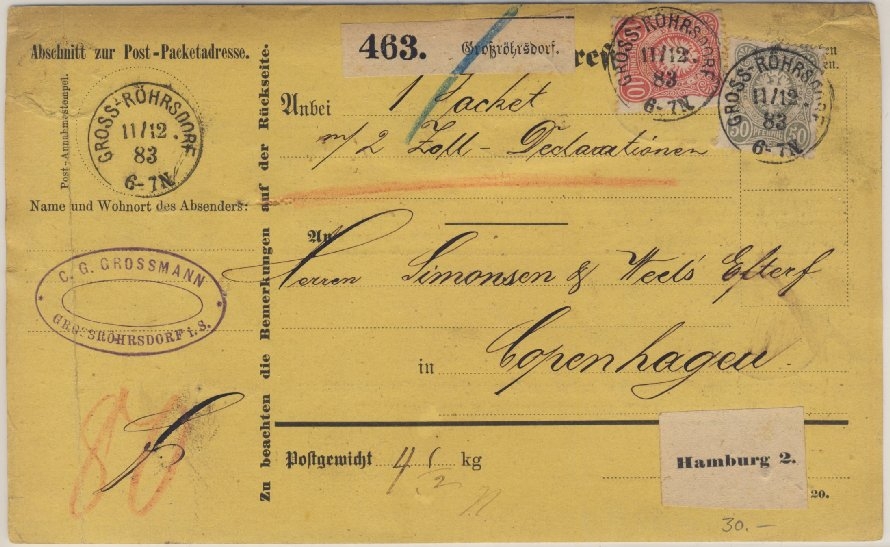 Abschnitt zur Post-Packetadresse.
Post-Annahmestempel.
GROSS-RÖHRSDORF
11/12.
83
6-7N
Name und Wohnort des Absenders:
C. G. GROSSMANN
GROSSRÖHRSDORF i. S.
80
Zu beachten die Bemerkungen auf der Rückseite.
463. Großröhrsdorf.
GROSS-RÖHRSDORF
11/12.
83
6-7N
10
GROSS-RÖHRSDORF
11/12.
83
6-7N
50 PFENNIG 50
Anbei 1 Packet
m/2 Zoll-Declarationen
An
Herren Simonsen & Weel's Efterf
in Copenhagen
Postgewicht 4 kg
Hamburg 2.
20.
30.-